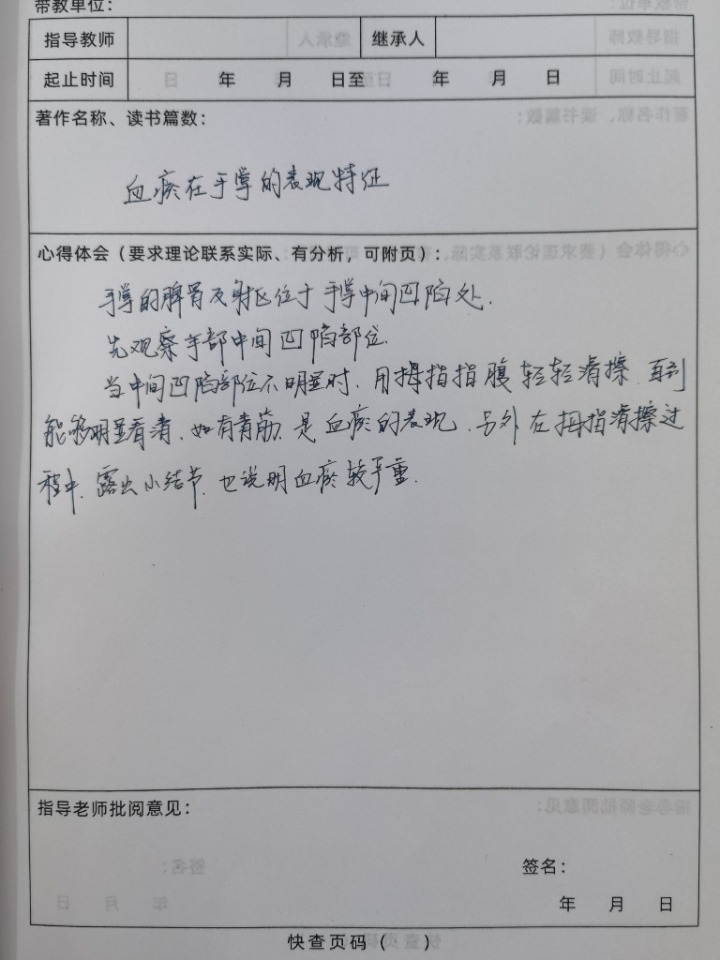 带教单位：
指导教师 继承人
起止时间 年 月 日至 年 月 日
著作名称、读书篇数：
血瘀在手掌的表现特征
心得体会（要求理论联系实际、有分析，可附页）：
手掌的脾胃反射区位于手掌中间凹陷处.
先观察手部中间凹陷部位.
当中间凹陷部位不明显时.用拇指指腹轻轻滑擦.直到
能够明显看清.如有青筋.是血瘀的表现.另外在拇指滑擦过
程中.露出小结节.也说明血瘀较严重.
指导老师批阅意见：
签名：
年 月 日
快查页码（ ）